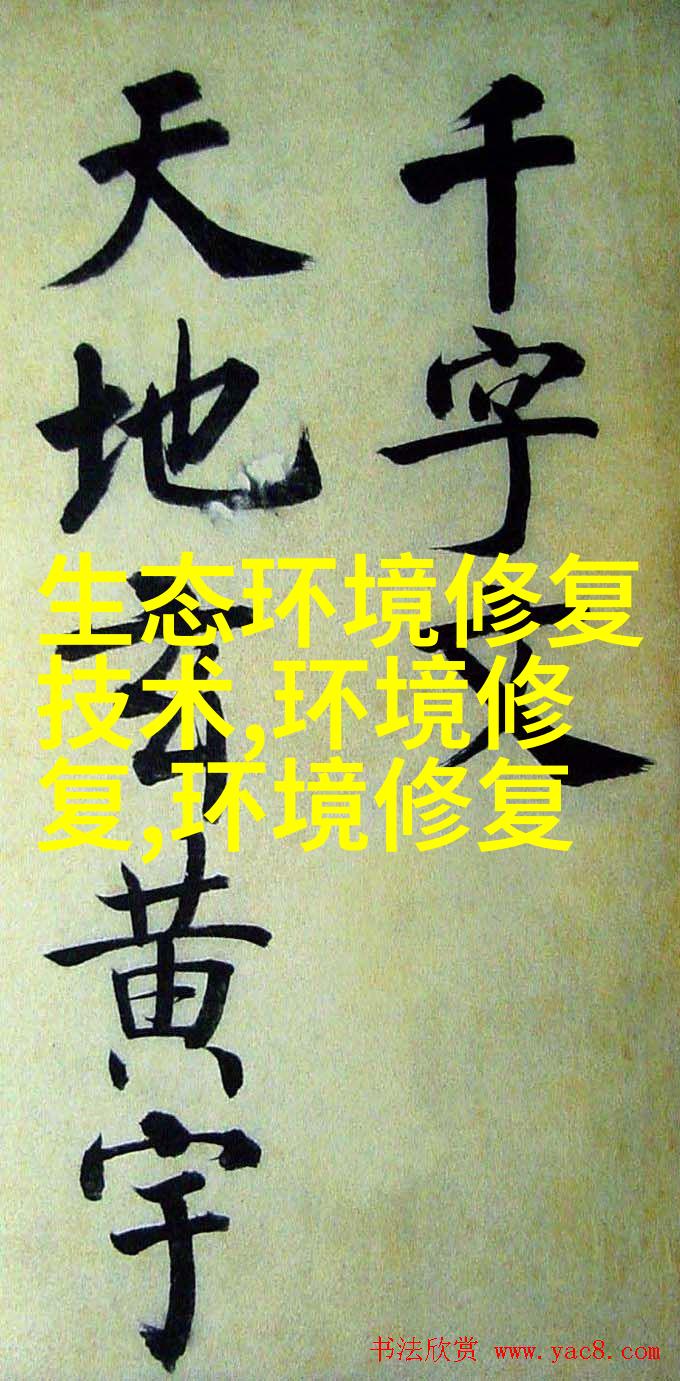 千字文
天地玄黄宇
生态环境修复
技术,环境修
复,环境修复
书法欣赏 www.yac8.com